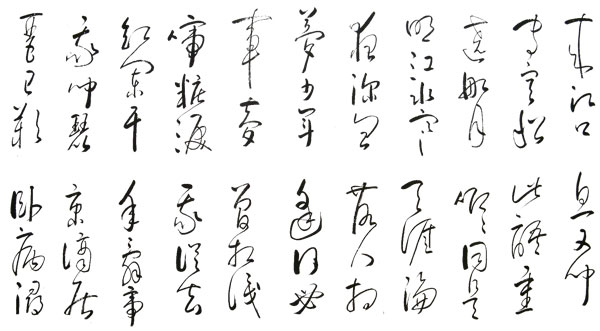 去來江口
守空船
遶船月
明江水寒
夜深忽
夢少年
事夢
啼粧淚
紅闌干
我聞琵
琶已歎
息又聞
此語重
唧唧同是
天涯淪
落人相
逢何必
曾相識
我從去
年辭帝
京謫居
臥病潯